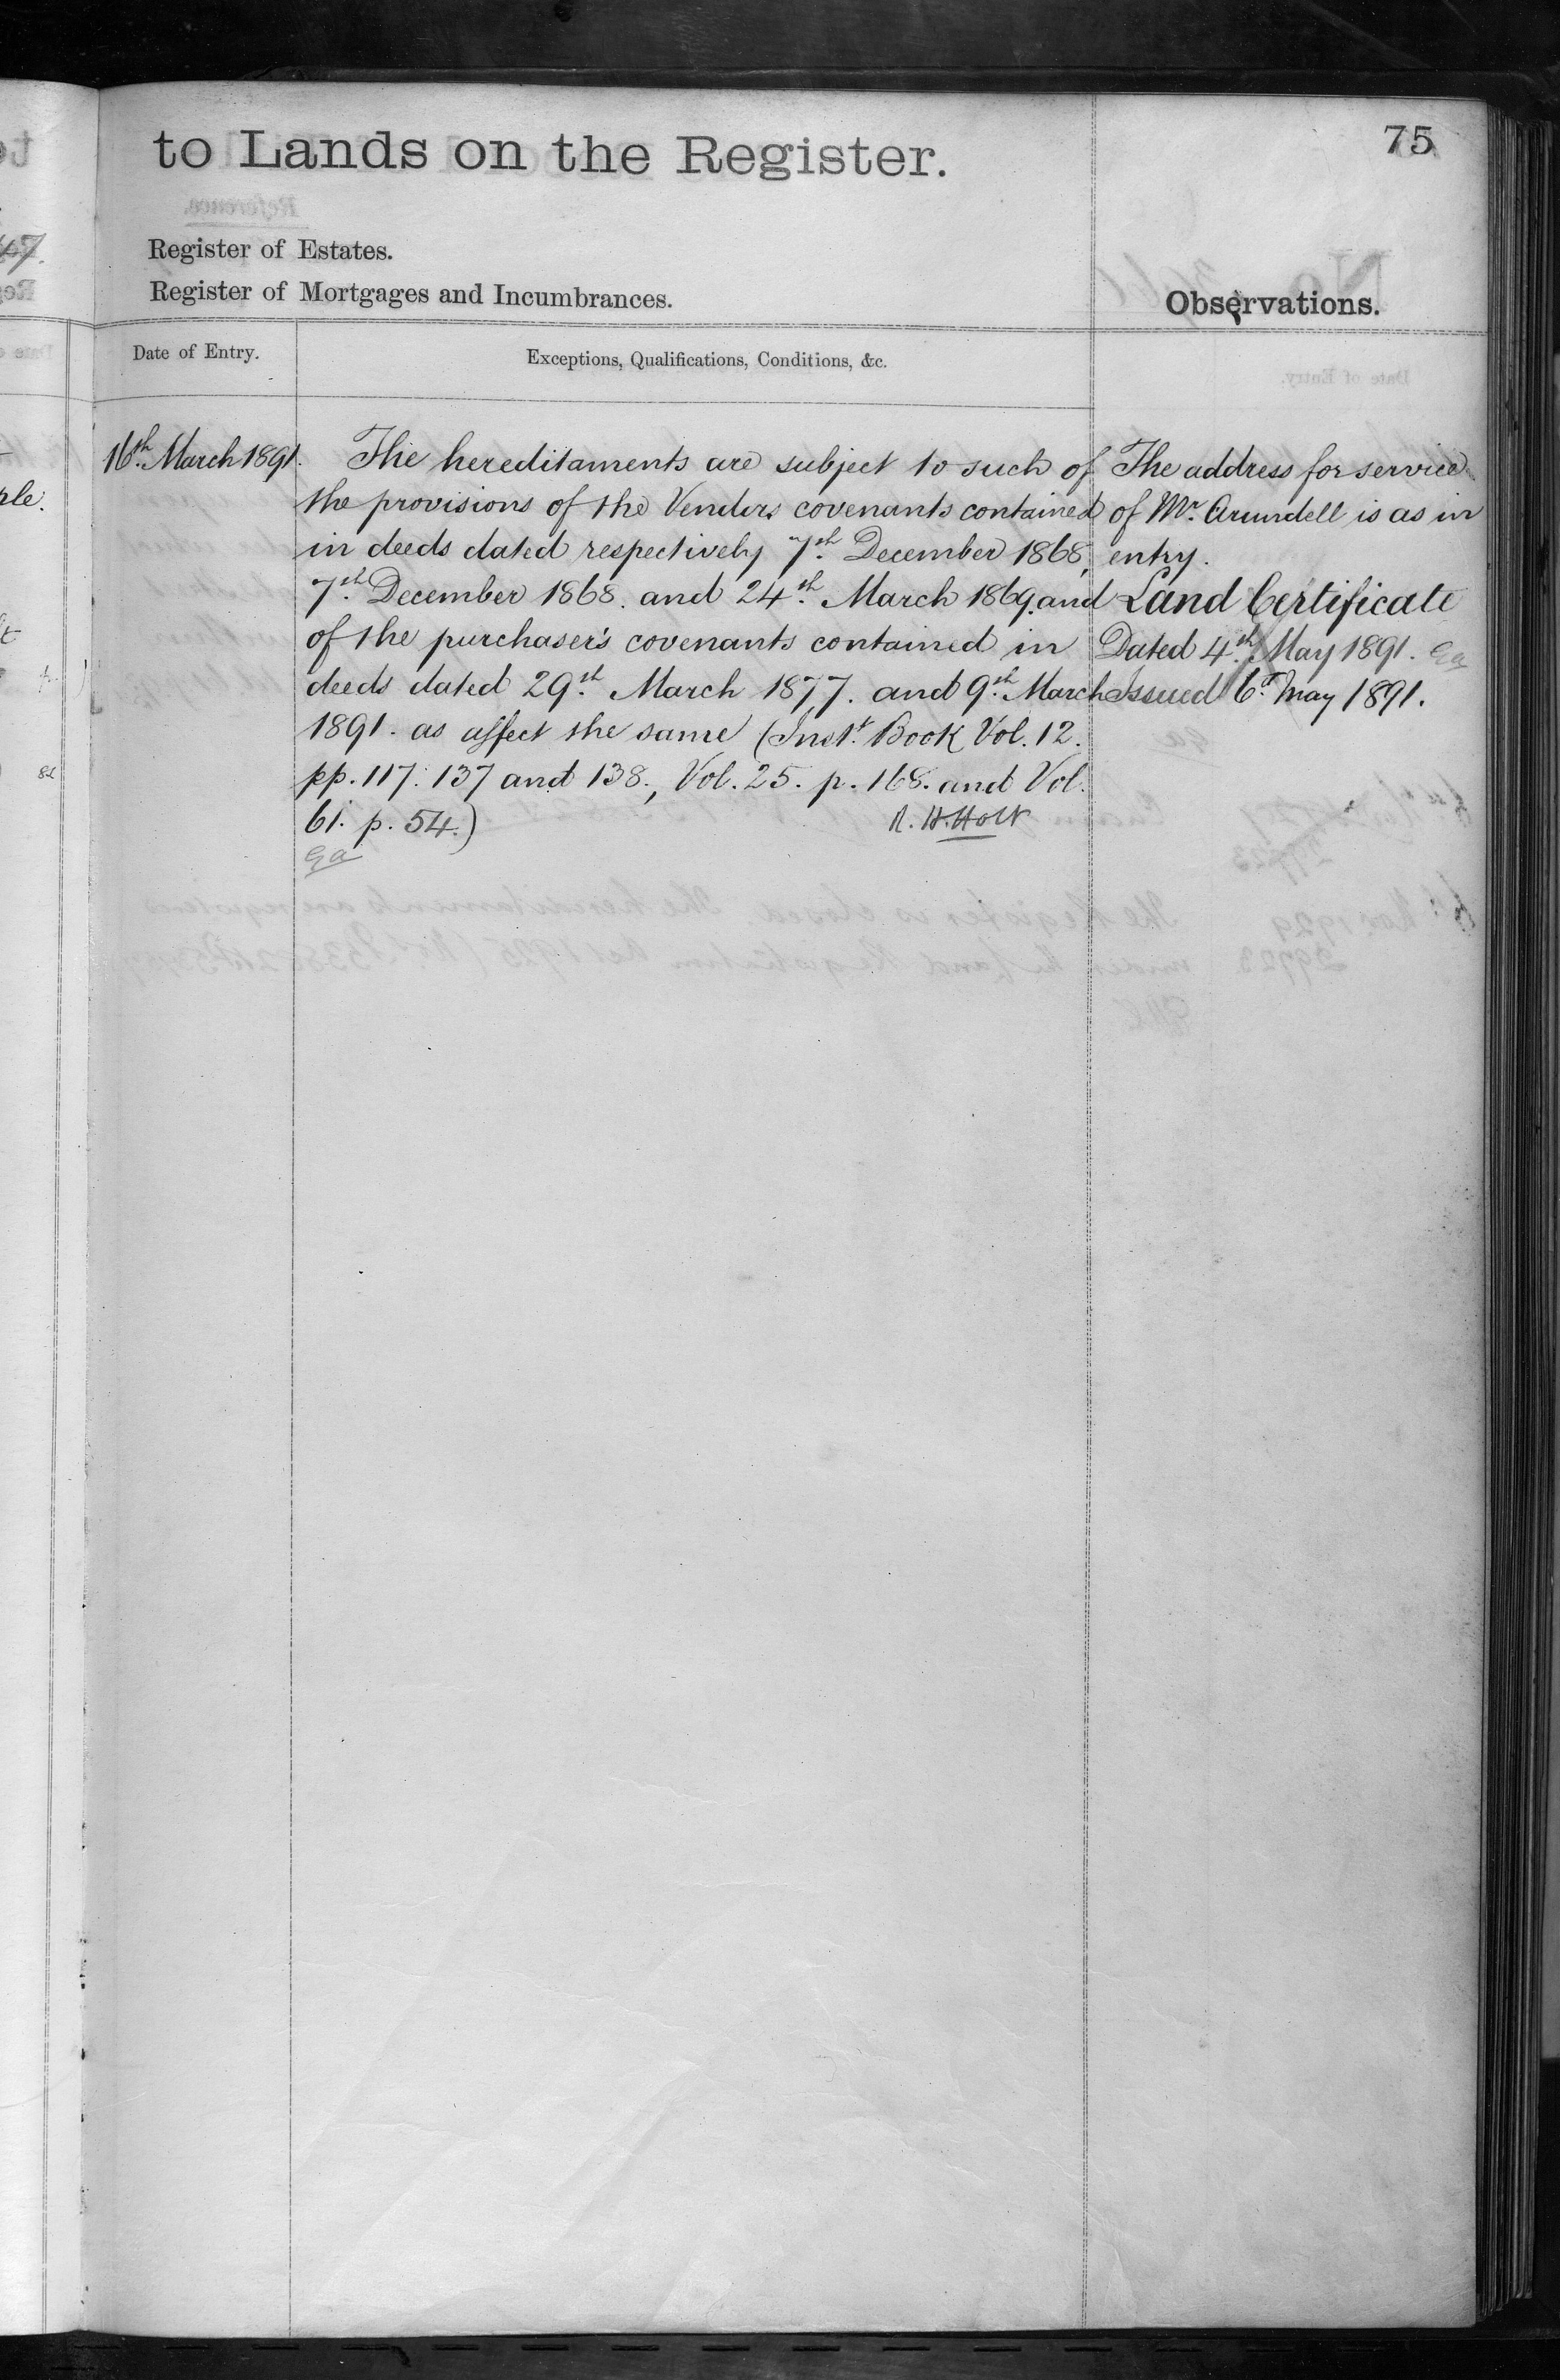 75
to Lands on the Register.
Register of Estates.
Register of Mortgages and Incumbrances.
Observations.
Date of Entry.
Exceptions, Qualifications, Conditions, &c.
16th March 1891.
The hereditaments are subject to such of
the provisions of the Vendors covenants contained
in deeds dated respectively 7th December 1868,
7th December 1868. and 24th March 1869. and
of the purchaser's covenants contained in
deeds dated 29th March 1877. and 9th March
1891. as affect the same (Inst. Book Vol. 12.
pp. 117. 137 and 138., Vol. 25. p. 168. and Vol.
61. p. 54.)
R. H. Holt
The address for service
of Mr. Arundell is as in
entry.
Land Certificate
Dated 4th May 1891.
Issued 6th May 1891.